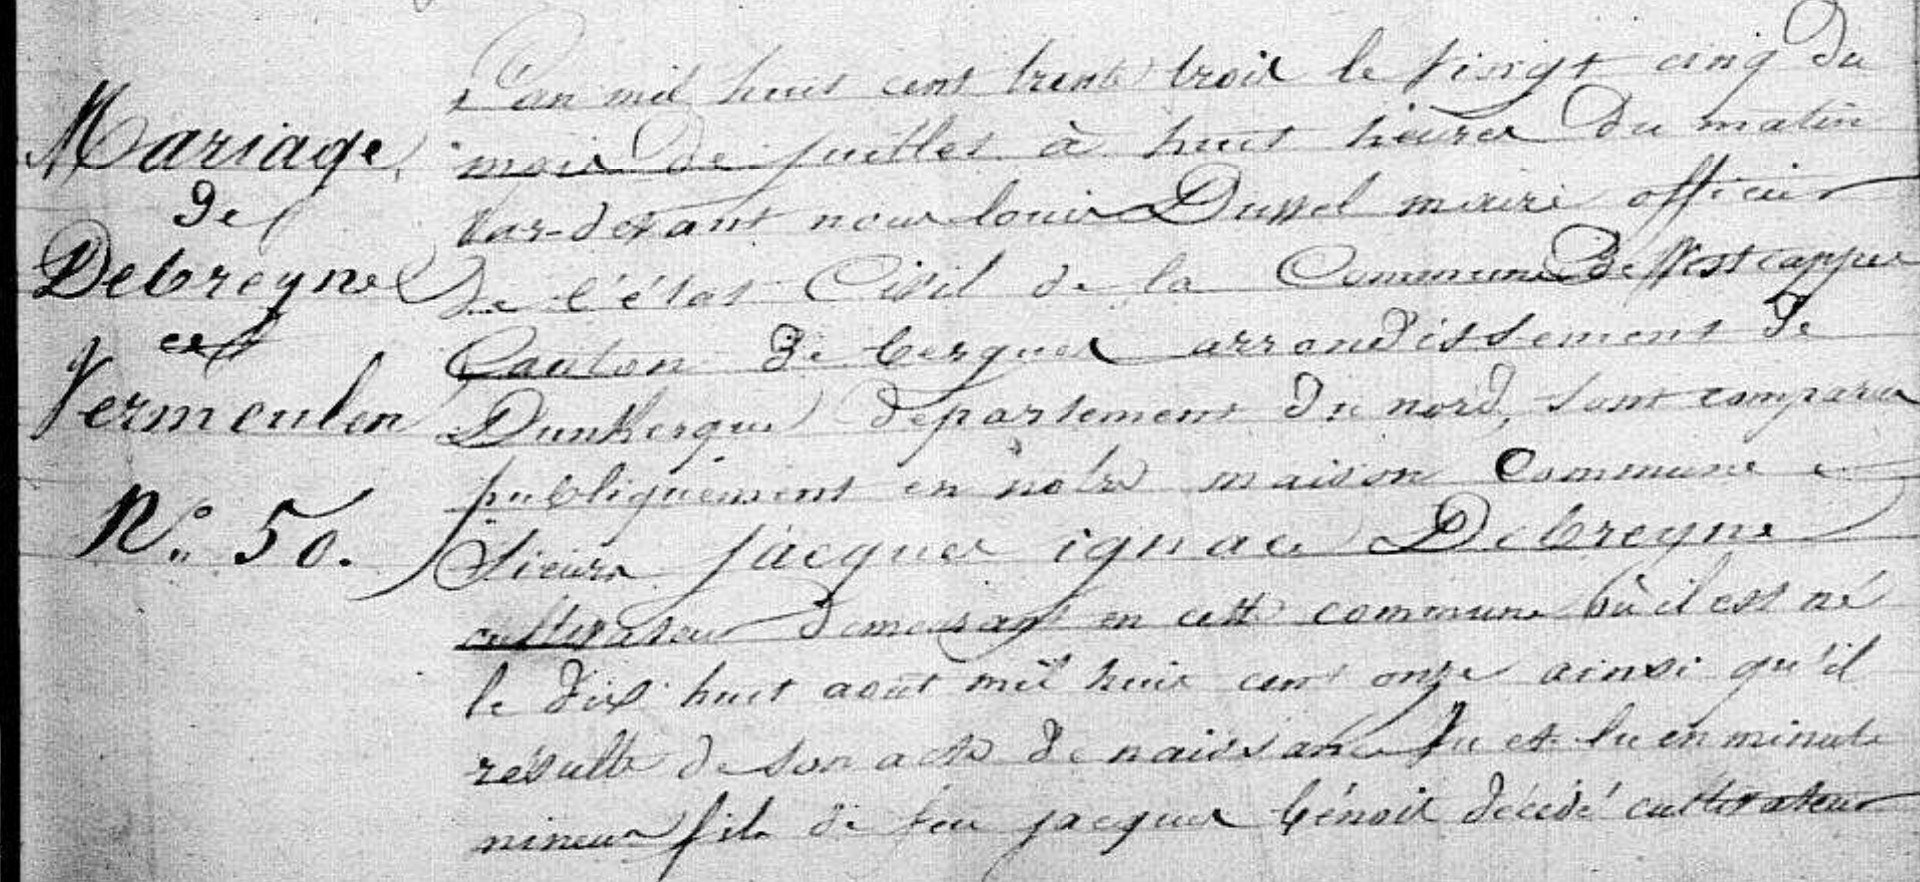 Mariage
de
Debreyne
et
Vermeulen
N.° 50.
L'an mil huit cent trente trois le vingt cinq du
mois de juillet à huit heures du matin
Par-devant nous louis Dussel maire officier
de l'état Civil de la Commune de Westcappel
Canton de bergues arrondissement de
Dunkerque departement du nord, sont comparus
publiquement en notre maison Commune
Sieurs jacques ignace Debreyne
cultivateur demeurant en cette commune où il est né
le dix huit août mil huit cent onze ainsi qu'il
résulte de son acte de naissance vu et lu en minute
mineur fils de feu jacques bénoit décédé cultivateur